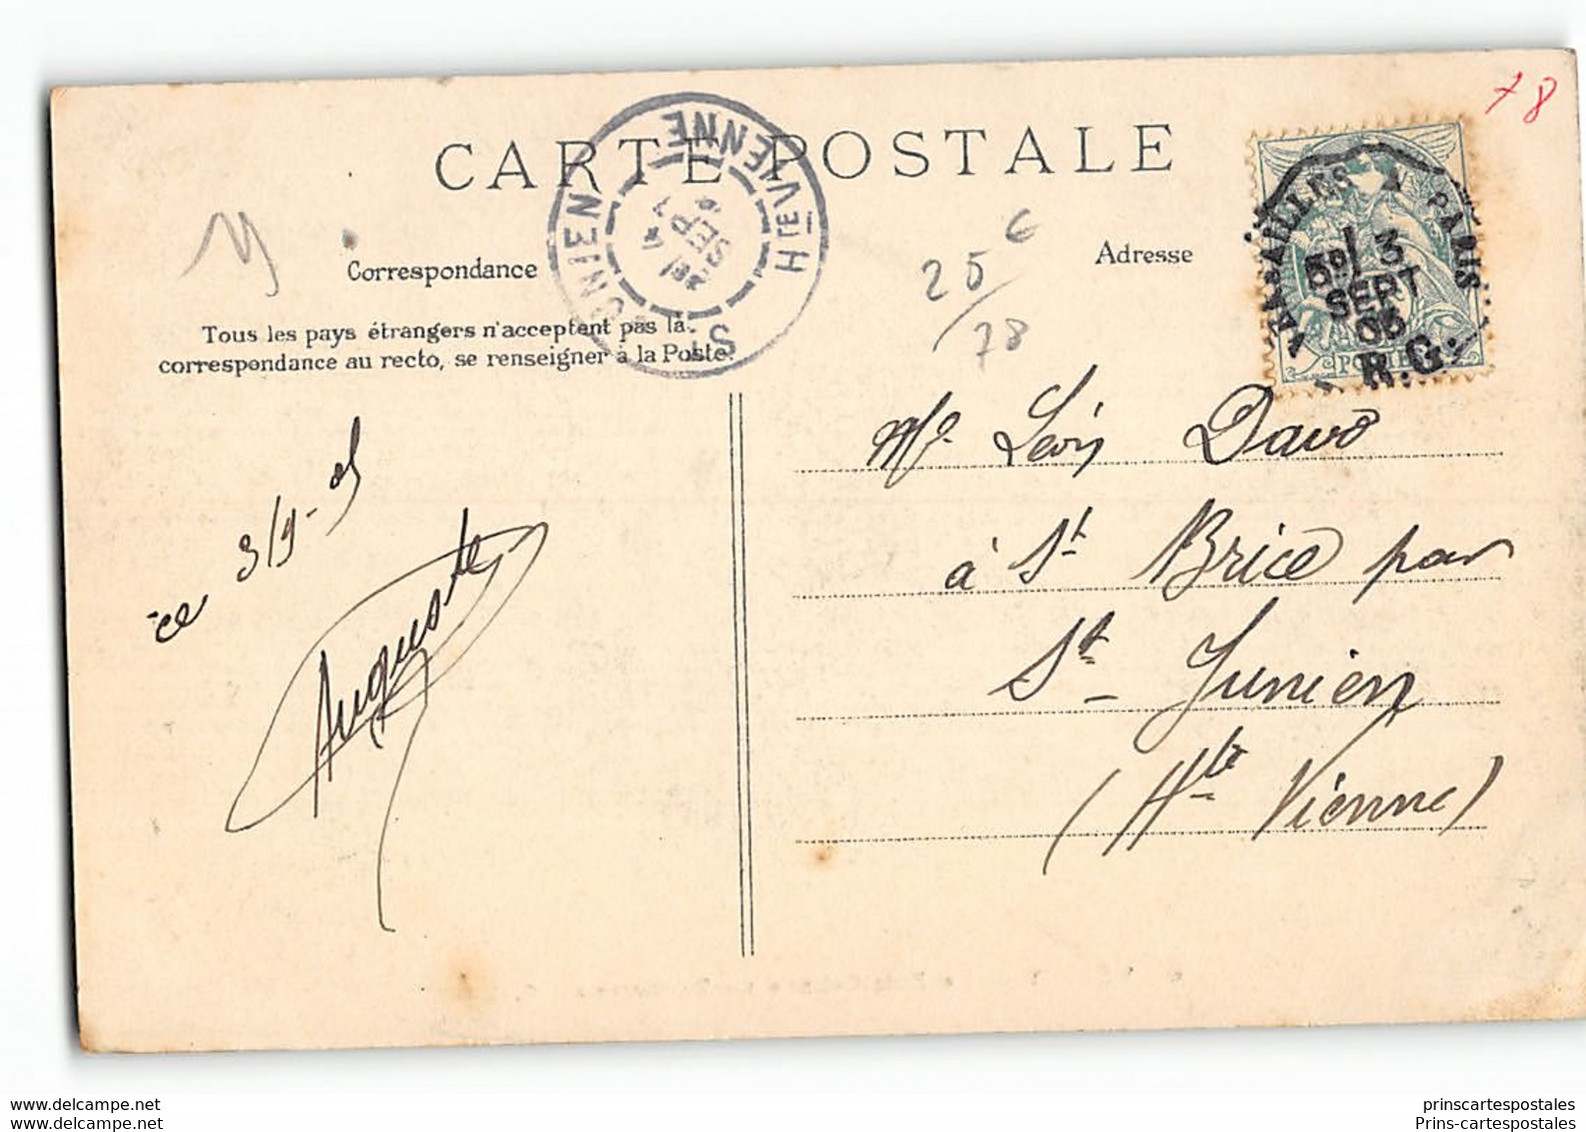 78
CARTE POSTALE
ST JUNIEN
HTE VIENNE
SEPT
VERSAILLES A PARIS
3
SEPT
05
R.G.
Correspondance
Adresse
25 €
/78
Tous les pays étrangers n'acceptent pas la
correspondance au recto, se renseigner à la Poste.
Mr Léon Davo
à St Brice par
St Junien
(Hte Vienne)
ce 3/9-05
Auguste
www.delcampe.net
www.delcampe.net
prinscartespostales
Prins-cartespostales